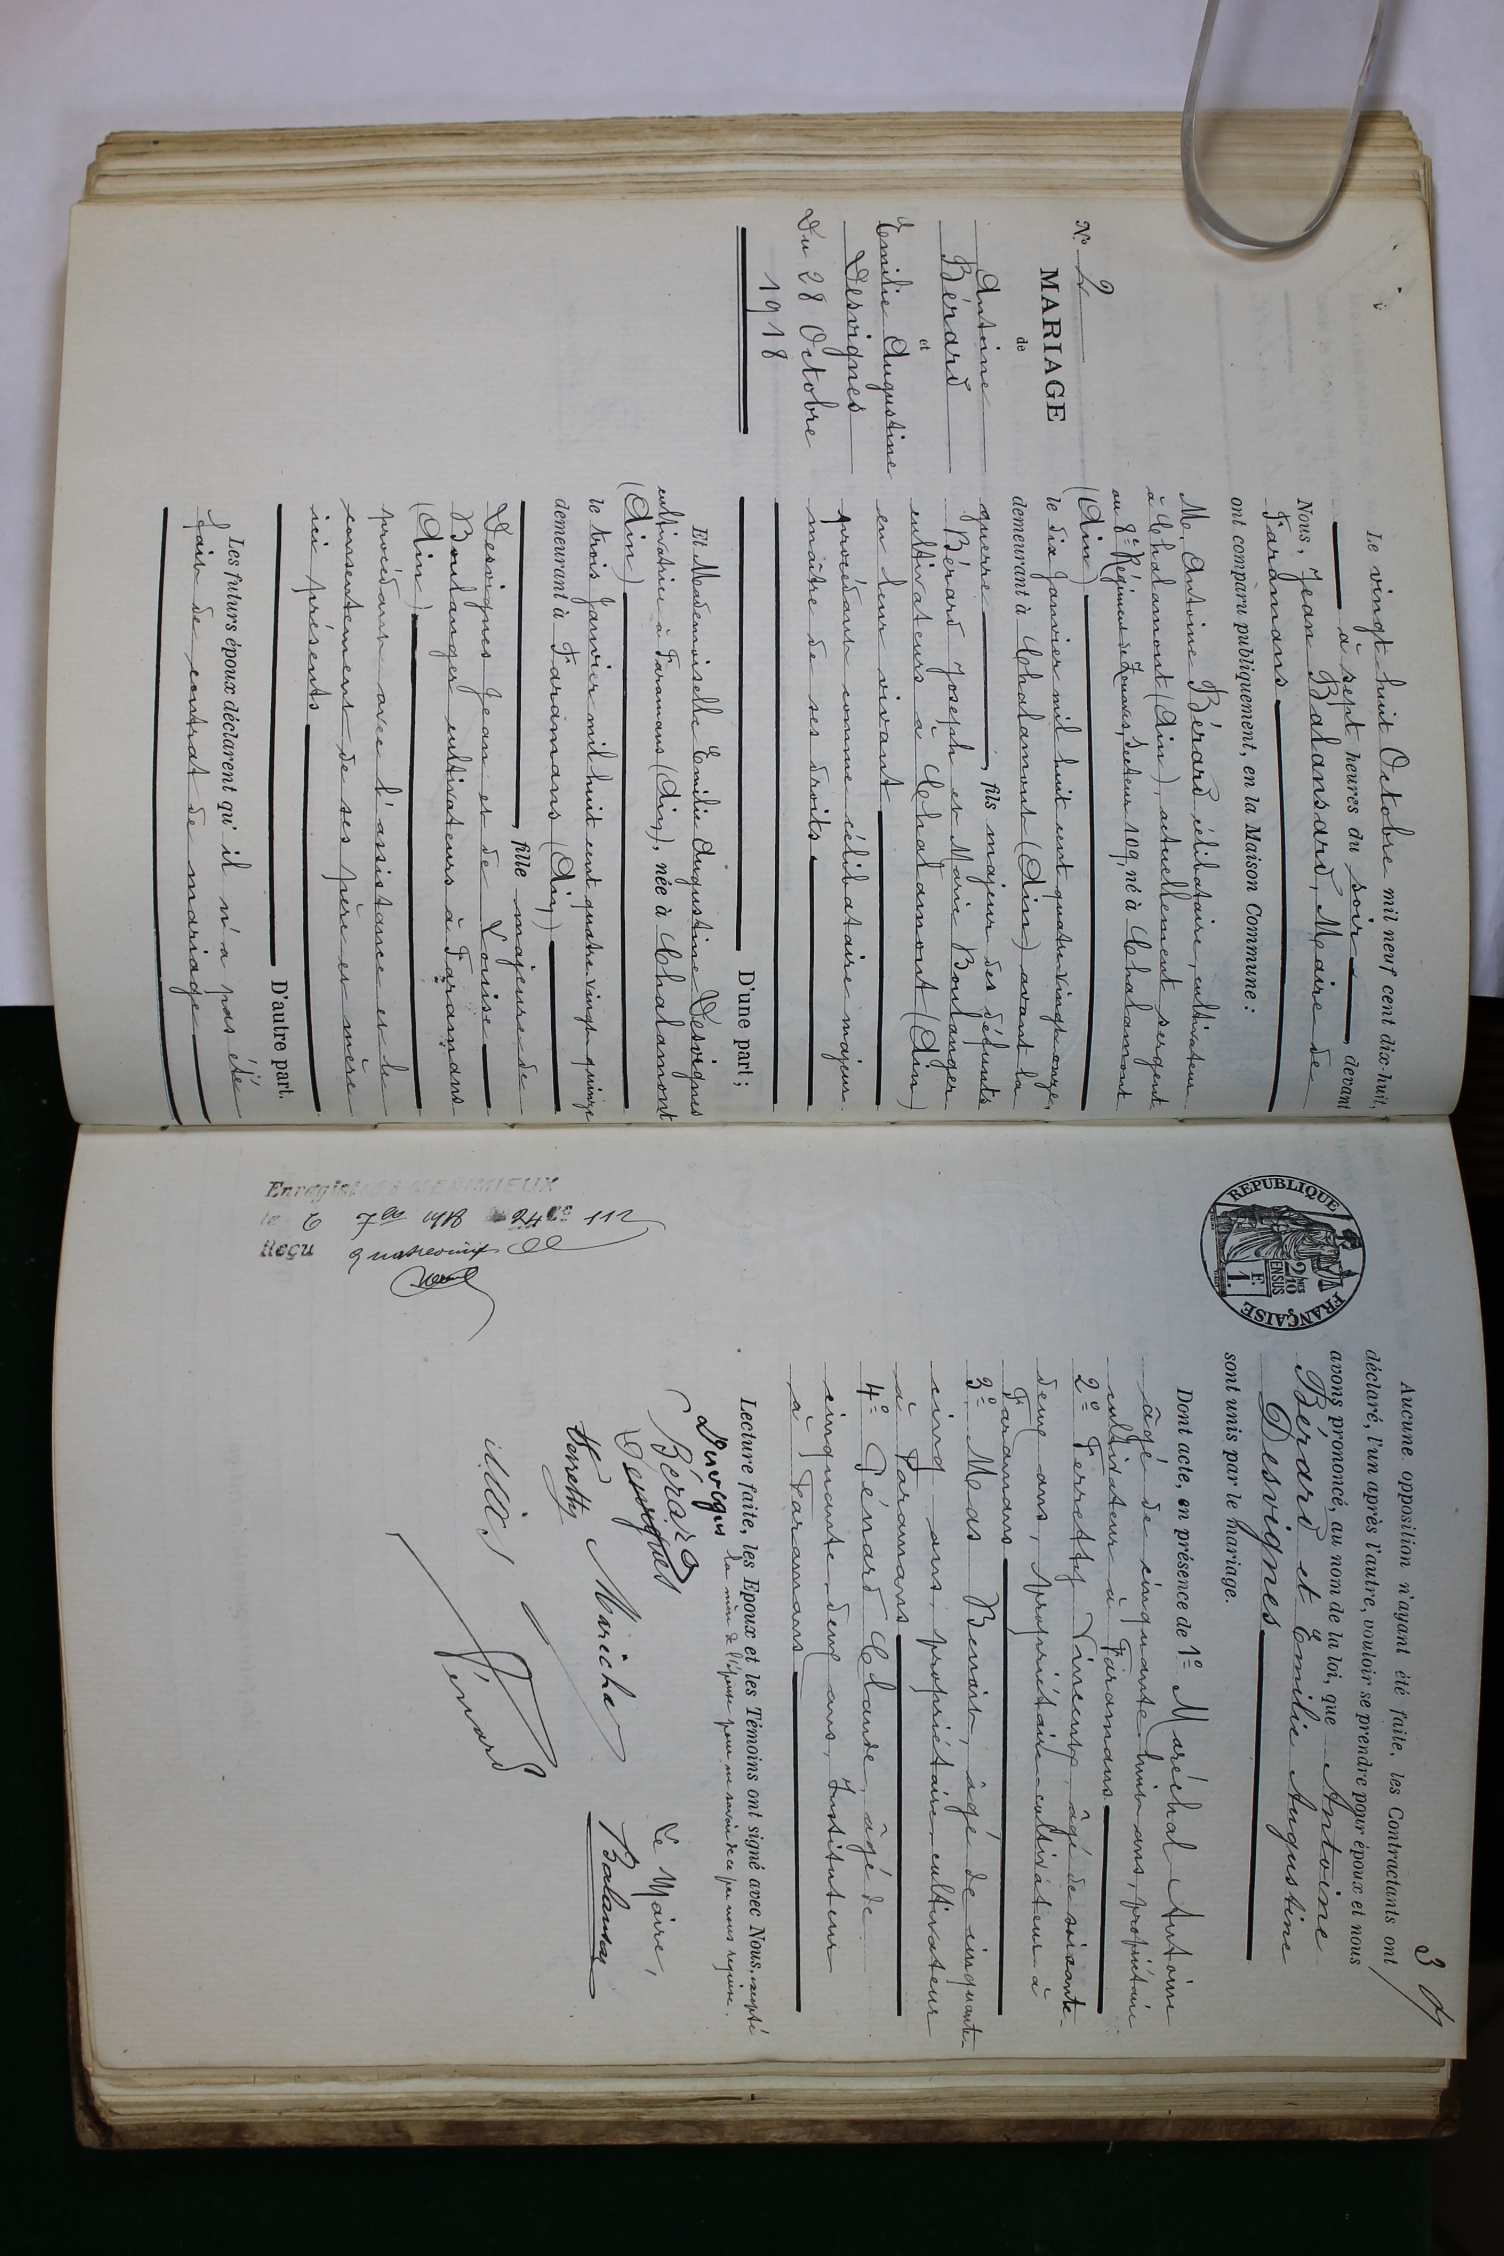 N° 2
MARIAGE
de
Antoine
Bérard
et
Emilie Augustine
Desvignes
Du 28 Octobre
1918
Le vingt-huit Octobre mil neuf cent dix-huit,
à sept heures du soir, devant
Nous, Jean Balansard, Maire de
Faramans
ont comparu publiquement, en la Maison Commune :
M. Antoine Bérard célibataire, cultivateur
à Chalamont (Ain), actuellement sergent
au 8e Régiment de Zouaves, Secteur 109, né à Chalamont
(Ain)
le dix Janvier mil huit cent quatre-vingt-onze,
demeurant à Chalamont (Ain) avant la
guerre, fils majeur des défunts
Bérard Joseph et Marie Boulanger
cultivateurs à Chalamont (Ain)
en leur vivant
procédant comme célibataire majeur
maître de ses droits
D'une part ;
Et Mademoiselle Emilie Augustine Desvignes
cultivatrice à Faramans (Ain), née à Chalamont
(Ain)
le trois Janvier mil huit cent quatre-vingt-quinze
demeurant à Faramans (Ain)
, fille majeure de
Desvignes Jean et de Louise
Boulanger cultivateurs à Faramans
(Ain)
procédant avec l'assistance et le
consentement de ses père et mère
ici présents
D'autre part.
Les futurs époux déclarent qu'il n'a pas été
fait de contrat de mariage
3
REPUBLIQUE FRANÇAISE
2/10
EN SUS
1 F.
Aucune opposition n'ayant été faite, les Contractants ont
déclaré, l'un après l'autre, vouloir se prendre pour époux et nous
avons prononcé, au nom de la loi, que Antoine
Bérard et Emilie Augustine
Desvignes
sont unis par le mariage.
Dont acte, en présence de 1° Maréchal Antoine
âgé de cinquante-huit ans, propriétaire
cultivateur à Faramans
2° Ferretty Vincent, âgé de soixante-
deux ans, propriétaire-cultivateur à
Faramans
3° Mas Benoit, âgé de cinquante-
cinq ans, propriétaire-cultivateur
à Faramans
4° Génard Claude, âgé de
cinquante-deux ans, Instituteur
à Faramans
Lecture faite, les Epoux et les Témoins ont signé avec Nous, excepté
la mère de l'épouse pour ne savoir de ce par nous requise.
Bérard
Desvignes
Maréchal
Ferretty
Génard
Le Maire,
Balansard
Enregistré à MEXIMIEUX
le 6 7bre 1918 24 Co 112
Reçu